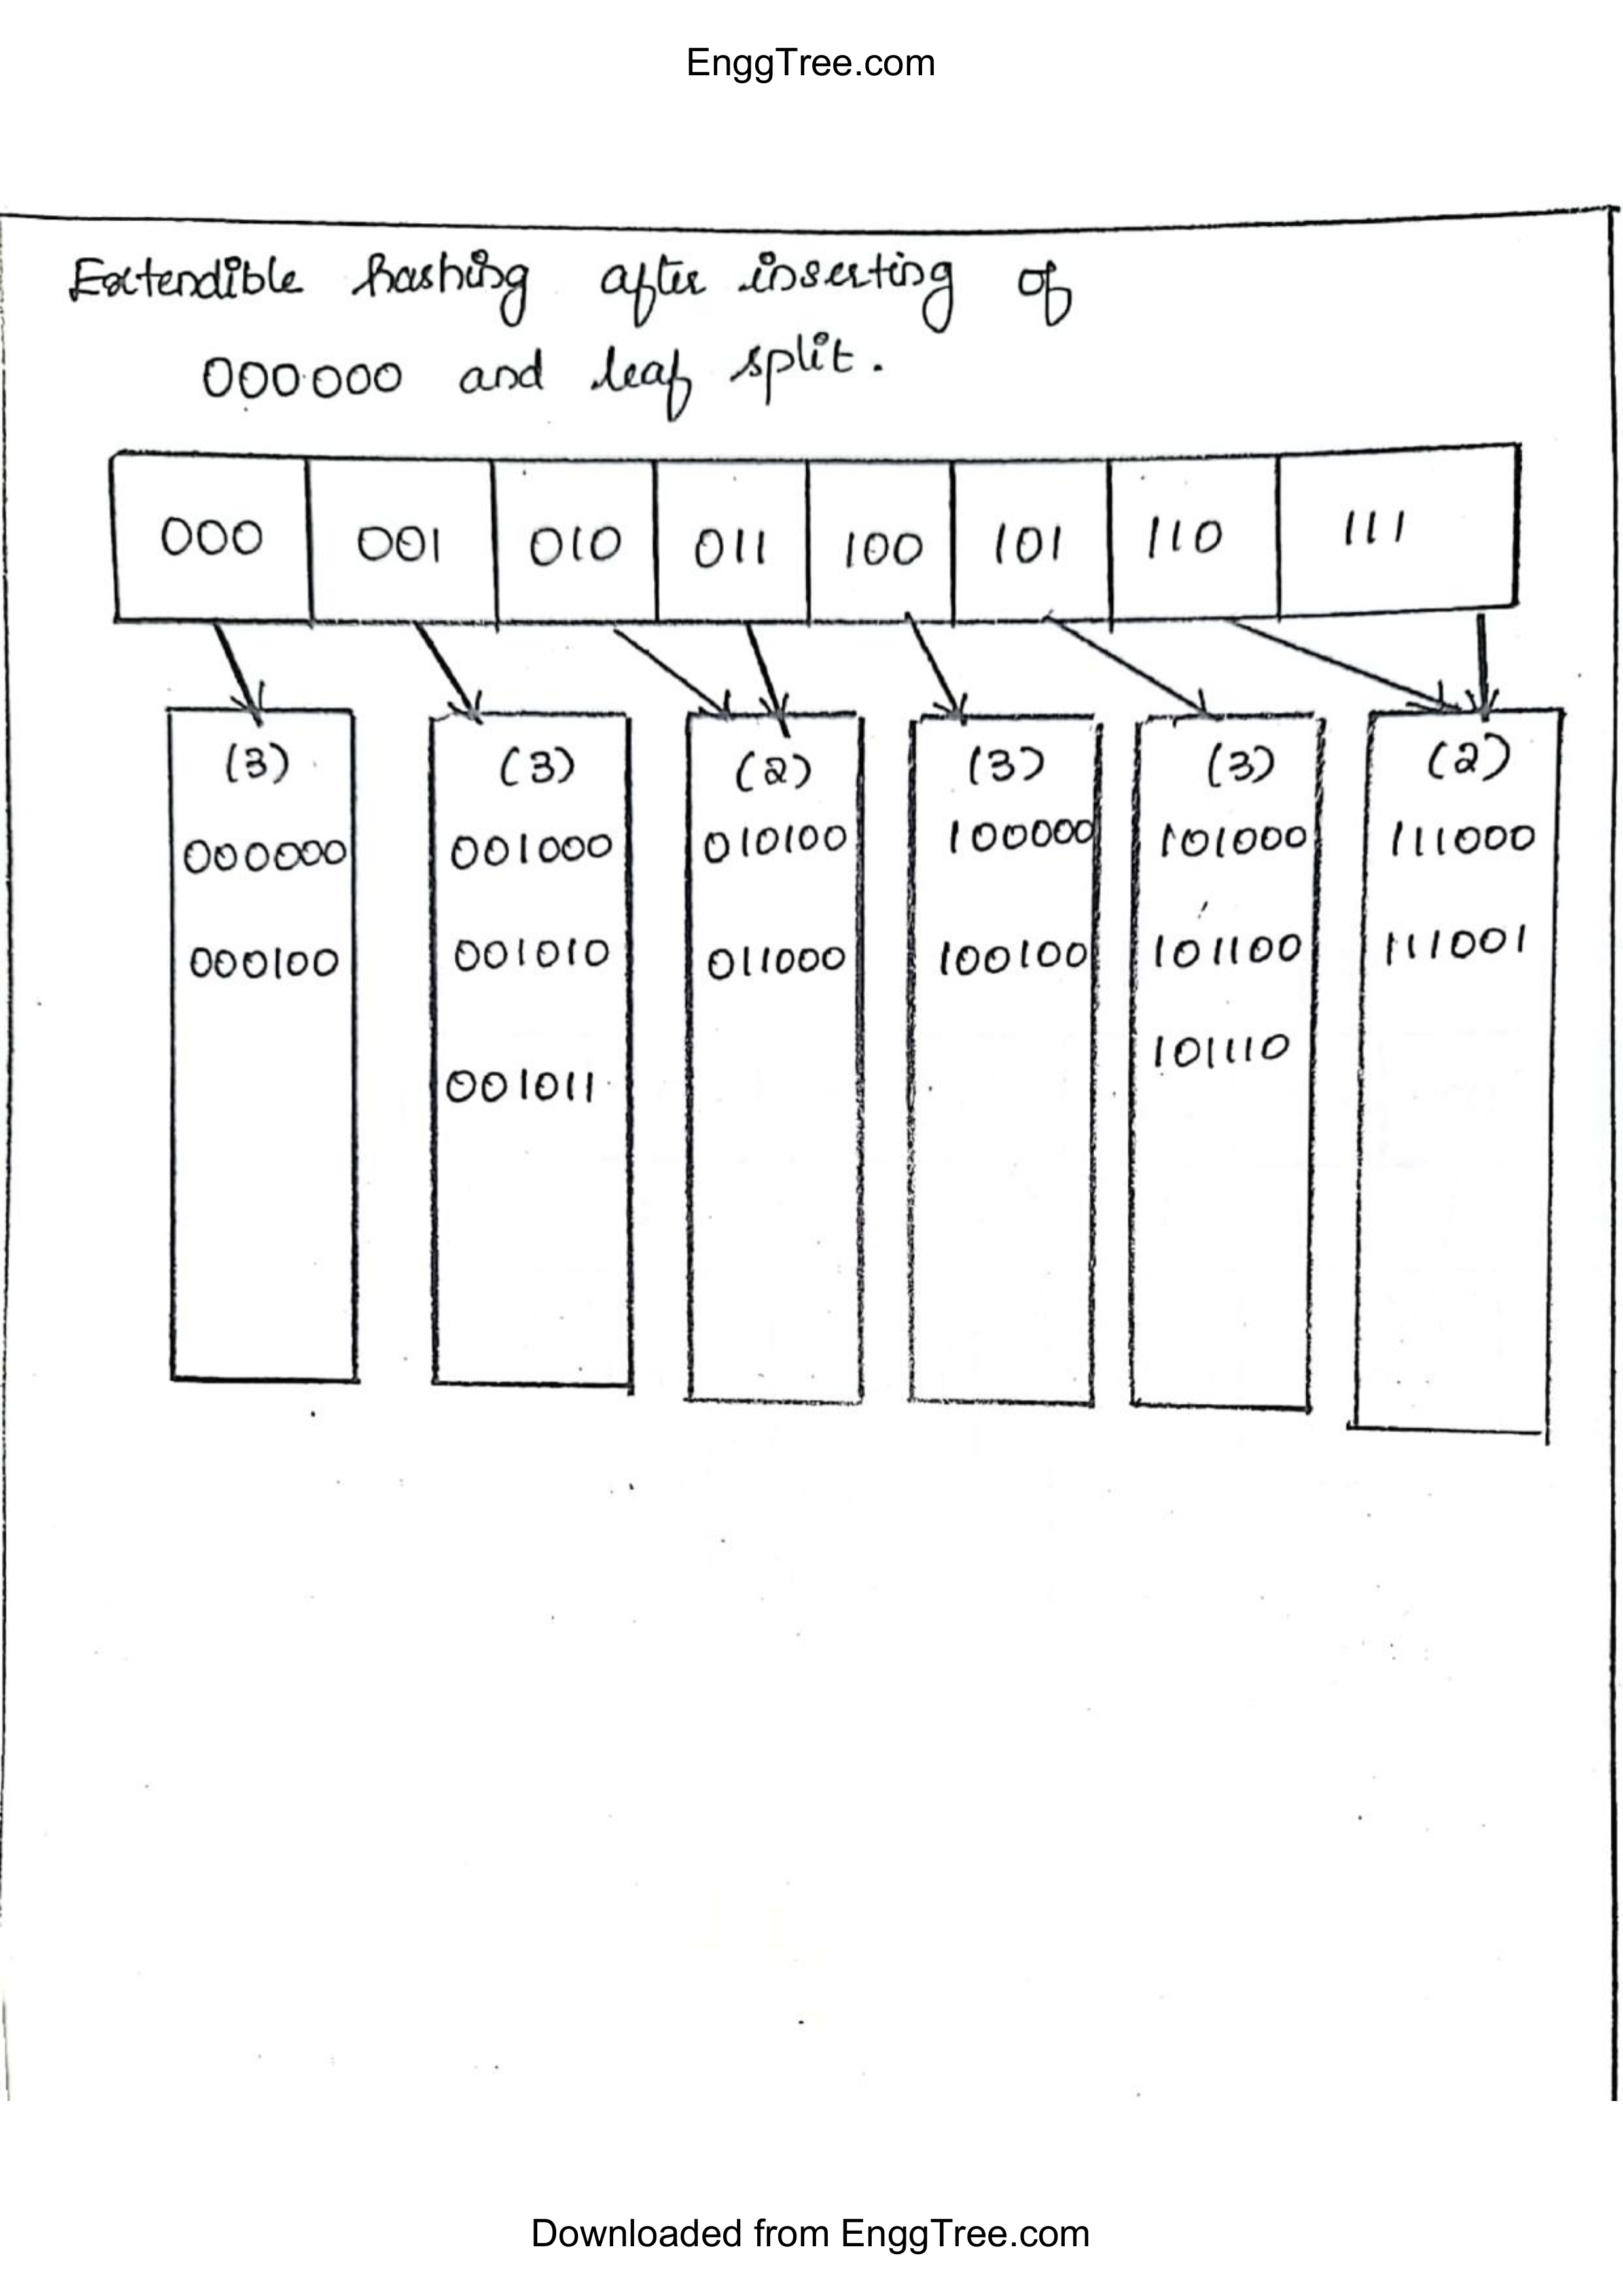 EnggTree.com
Extendible hashing after inserting of
000000 and leaf split.
000 001 010 011 100 101 110 111
(3) (3) (2) (3) (3) (2)
000000 001000 010100 100000 101000 111000
000100 001010 011000 100100 101100 111001
001011 101110
Downloaded from EnggTree.com